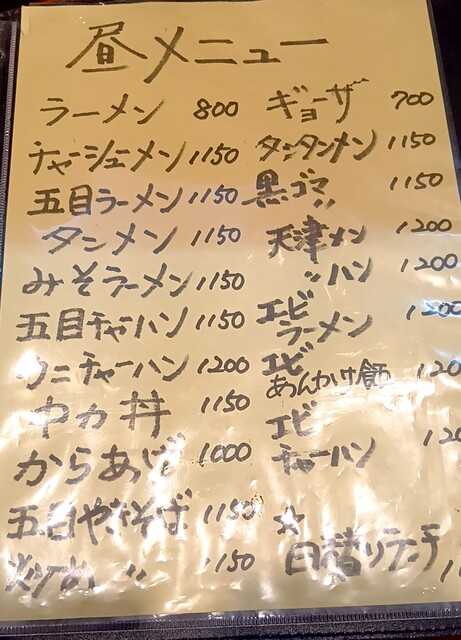 昼メニュー
ラーメン 800
チャーシューメン 1150
五目ラーメン 1150
タンメン 1150
みそラーメン 1150
五目チャーハン 1150
カニチャーハン 1200
中カ丼 1150
からあげ 1000
五目やきそば 1150
〃 1150
ギョーザ 700
タンタンメン 1150
黒ゴマ 〃 1150
天津メン 1200
〃ハン 1200
エビ
ラーメン 1200
エビ
あんかけ飯 120
エビ
チャーハン 120
☆
日替リランチ